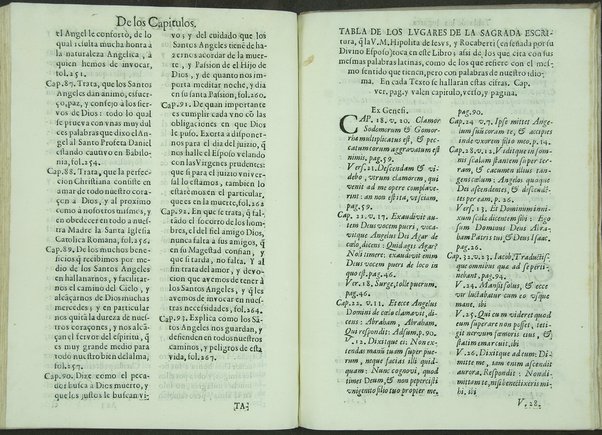 De los Capitulos.
el Angel le conforto, de lo
qual resulta mucha honra à
la naturaleza Angelica, à
quien hemos de invocar,
fol. 251.
Cap. 87. Trata, que los Santos
Angeles dan animo, esfuer-
ço, paz, y consejo à los sier-
vos de Dios: todo lo qual
se prueva con vnas muy dul
ces palabras que dixo el An-
gel al Santo Profeta Daniel
estando cautivo en Babilo-
nia, fol. 254.
Cap. 88. Trata, que la perfec-
cion Christiana consiste en
amar de todo nuestro cora-
çon à Dios, y al proximo
como à nosotros mismos, y
en obedecer en todo à nues-
tra Madre la Santa Iglesia
Catolica Romana, fo. 256
Cap. 89. De los muchos bene-
ficios q̃ recibimos por me-
dio de los Santos Angeles
en hallanarnos, y facilitar-
nos el camino del Cielo, y
alcançarnos de Dios muchas
mercedes, y en particular
nos quita la dureza de nues-
tros coraçones, y nos alcã-
çan el fervor del espiritu, q̃
es muy grande medio para
todo nuestro bien del alma,
fol. 257.
Cap. 90. Dize como el peca-
dor busca à Dios muerto, y
que los justos le buscan vi-
vo; y del cuidado que los
Santos Angeles tiené de ha-
zernos acordar de la muer-
te, y Passion de el Hijo de
Dios, y de quanto nos im-
porta meditar noche, y dia
en su santa Passion, fol. 260.
Cap. 91. De quan importante
es cumplir cada vno cõ las
obligaciones en que Dios
le puso. Exorta à disponer-
nos para el dia del juizio, q̃
nos halle el Esposo velando
con las Virgenes prudentes:
que si para el juizio vniver-
sal lo estamos, tambien lo
estarémos en el particular,
que es en la muerte, fol. 262
Cap. 92. En que se trata, q̃ fal-
tando el socorro de los hom-
bres, el del fiel amigo Dios,
nunca falta à sus amigos, q̃
en su Magestad confian, y
que todo es nada. Y al
fin trata del amor, y devo-
cion que avemos de tener à
los Santos Angeles, y q̃ les
avemos de invocar en nues-
tras necessidades, fol. 264.
Cap. 93. Explica como los Sã-
tos Angeles nos guardan, y
defienden en todos nuestros
caminos, y peligros de esta
vida, fol. 267.
TA-
TABLA DE LOS LVGARES DE LA SAGRADA ESCRI-
tura, q̃ la V. M. Hipolita de Iesvs, y Rocaberti (enseñada por su
Divino Esposo) toca en este Libro: assi de los que cita con sus
mesmas palabras latinas, como de los que refiere con el mes-
mo sentido que tienen, pero con palabras de nuestro idio-
ma. En cada Texto se hallaràn estas cifras. Cap.
ver. pag. y valen capitulo, verso, y pagina.
Ex Genesi.
CAP. 18. v. 20. Clamor
Sodomorum & Gomor
rha multiplicatus est, & pec
catum eorum aggravatum est
nimis. pag. 59.
Vers. 21. Descendam & vi-
debo, vtrum clamorem, qui
venit ad me opere complave-
rint: an non est ita, vt sciam.
pag. 59.
Cap. 21. v. 17. Exaudivit au-
tem Deus vocem pueri, voca-
vitque Angelus Dei Agar de
cœlo, dicens: Quid agis Agar?
Noli timere: exaudivit enim
Deus vocem pueri de loco in
quo est. pag. 46.
Ver. 18. Surge, tolle puerum.
pag. 46.
Cap. 22. v. 11. Et ecce Angelus
Domini de cœlo clamavit, di-
cens: Abraham, Abraham.
Qui respondit: Adsum. p. 90.
V. 12. Dixitque ei: Non ex-
tendas manũ tuam super pue-
rum, neque facias illi quid-
quam: Nunc cognovi, quod
times Deum, & non pepercisti
vnigenito filio tuo propter me.
pag. 90.
Cap. 24. v. 7. Ipse mittet Ange-
lum suũ coram te, & accipies
inde vxorem filio meo. p. 14.
Cap. 28. v. 12. Vidit que in som-
nis scalam stantem super ter-
ram, & cacumen illius tan-
gens cœlum: Angelos quoque
Dei ascendentes, & discendé-
tes per eam. p. 26.
Vers. 13. Et Dominum inni-
xum scalæ dicentem sibi: Ego
sum Dominus Deus Abra-
ham Patris tui, & Deus Isaac.
pag. 26.
Cap. 32. v. 23. Iacob, Traductis-
que omnibus qua ad se perti-
nebant. pag. 94.
V. 24. Mansit solus, & ecce
vir luctabatur cum eo vsque
mane. ibi
V. 25. Qui cum videret quod
eum superare non posset, teti-
git nervum fœmoris eius, &
statim emarcuit. ibi
V. 26. Dixitque ad eum: Di-
mitte me, iam enim ascendit
aurora. Respondit: Non di-
mittam te, nisi benedixeris mi-
hi. ibi
V. 28.